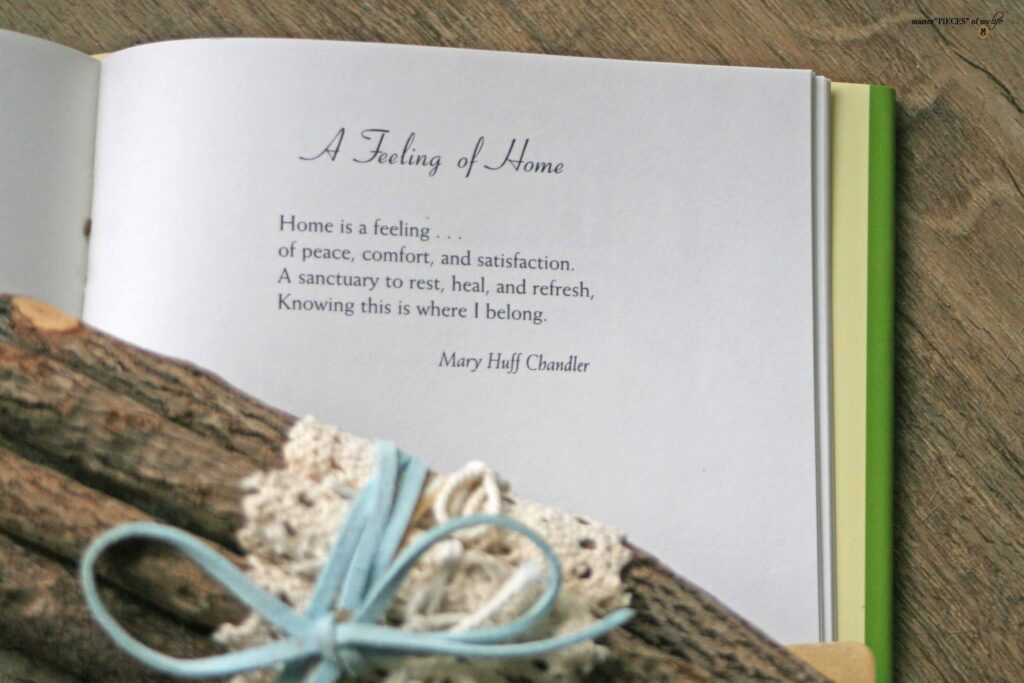 master"PIECES" of my life
M
A Feeling of Home
Home is a feeling . . .
of peace, comfort, and satisfaction.
A sanctuary to rest, heal, and refresh,
Knowing this is where I belong.
Mary Huff Chandler